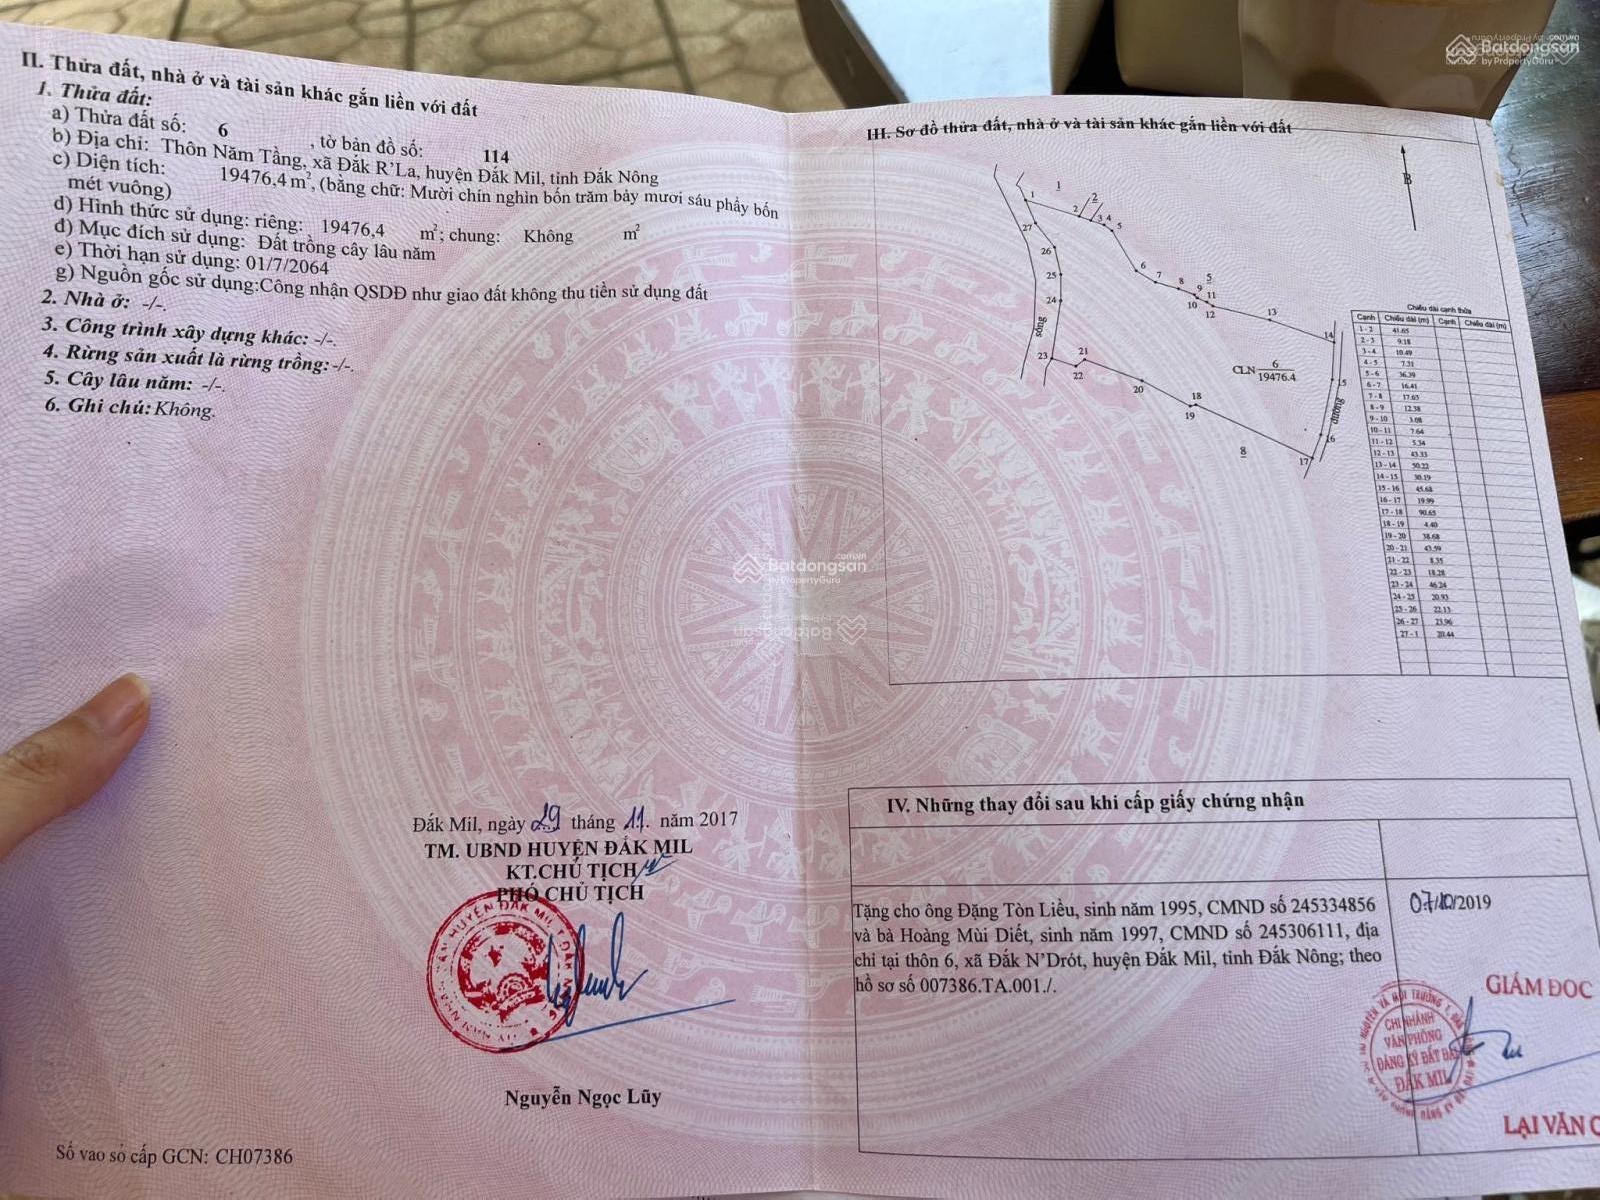 II. Thửa đất, nhà ở và tài sản khác gắn liền với đất
1. Thửa đất:
a) Thửa đất số: 6 , tờ bản đồ số: 114
b) Địa chỉ: Thôn Năm Tầng, xã Đắk R'La, huyện Đắk Mil, tỉnh Đắk Nông
c) Diện tích: 19476,4 m², (bằng chữ: Mười chín nghìn bốn trăm bảy mươi sáu phẩy bốn
mét vuông)
d) Hình thức sử dụng: riêng: 19476,4 m²; chung: Không m²
đ) Mục đích sử dụng: Đất trồng cây lâu năm
e) Thời hạn sử dụng: 01/7/2064
g) Nguồn gốc sử dụng:Công nhận QSDĐ như giao đất không thu tiền sử dụng đất
2. Nhà ở: -/-.
3. Công trình xây dựng khác: -/-.
4. Rừng sản xuất là rừng trồng: -/-.
5. Cây lâu năm: -/-.
6. Ghi chú: Không.
Đắk Mil, ngày 29 tháng 11. năm 2017
TM. UBND HUYỆN ĐẮK MIL
KT.CHỦ TỊCH
PHÓ CHỦ TỊCH
Nguyễn Ngọc Lũy
Số vào sổ cấp GCN: CH07386
III. Sơ đồ thửa đất, nhà ở và tài sản khác gắn liền với đất
B
1
2
1
2
3 4
5
27
26
25
24
sông
23
21
22
20
18
19
6
7
8
5
9
11
10
12
13
14
CLN 6
19476.4
15
đường
16
17
8
Chiều dài cạnh thửa
Cạnh Chiều dài (m) Cạnh Chiều dài (m)
1 - 2 41.65
2 - 3 9.18
3 - 4 10.49
4 - 5 7.31
5 - 6 36.39
6 - 7 16.41
7 - 8 17.63
8 - 9 12.38
9 - 10 3.08
10 - 11 7.64
11 - 12 5.34
12 - 13 43.33
13 - 14 50.22
14 - 15 30.19
15 - 16 45.68
16 - 17 19.99
17 - 18 90.65
18 - 19 4.40
19 - 20 38.68
20 - 21 43.59
21 - 22 8.35
22 - 23 18.28
23 - 24 46.24
24 - 25 20.93
25 - 26 22.13
26 - 27 23.96
27 - 1 20.44
IV. Những thay đổi sau khi cấp giấy chứng nhận
Tặng cho ông Đặng Tòn Liều, sinh năm 1995, CMND số 245334856
và bà Hoàng Mùi Diết, sinh năm 1997, CMND số 245306111, địa
chỉ tại thôn 6, xã Đắk N'Drót, huyện Đắk Mil, tỉnh Đắk Nông; theo
hồ sơ số 007386.TA.001./.
07/10/2019
GIÁM ĐỐC
CHI NHÁNH
VĂN PHÒNG
ĐĂNG KÝ ĐẤT ĐAI
ĐẮK MIL
LẠI VĂN
Batdongsan.com.vn
by PropertyGuru
Batdongsan.com.vn
by PropertyGuru